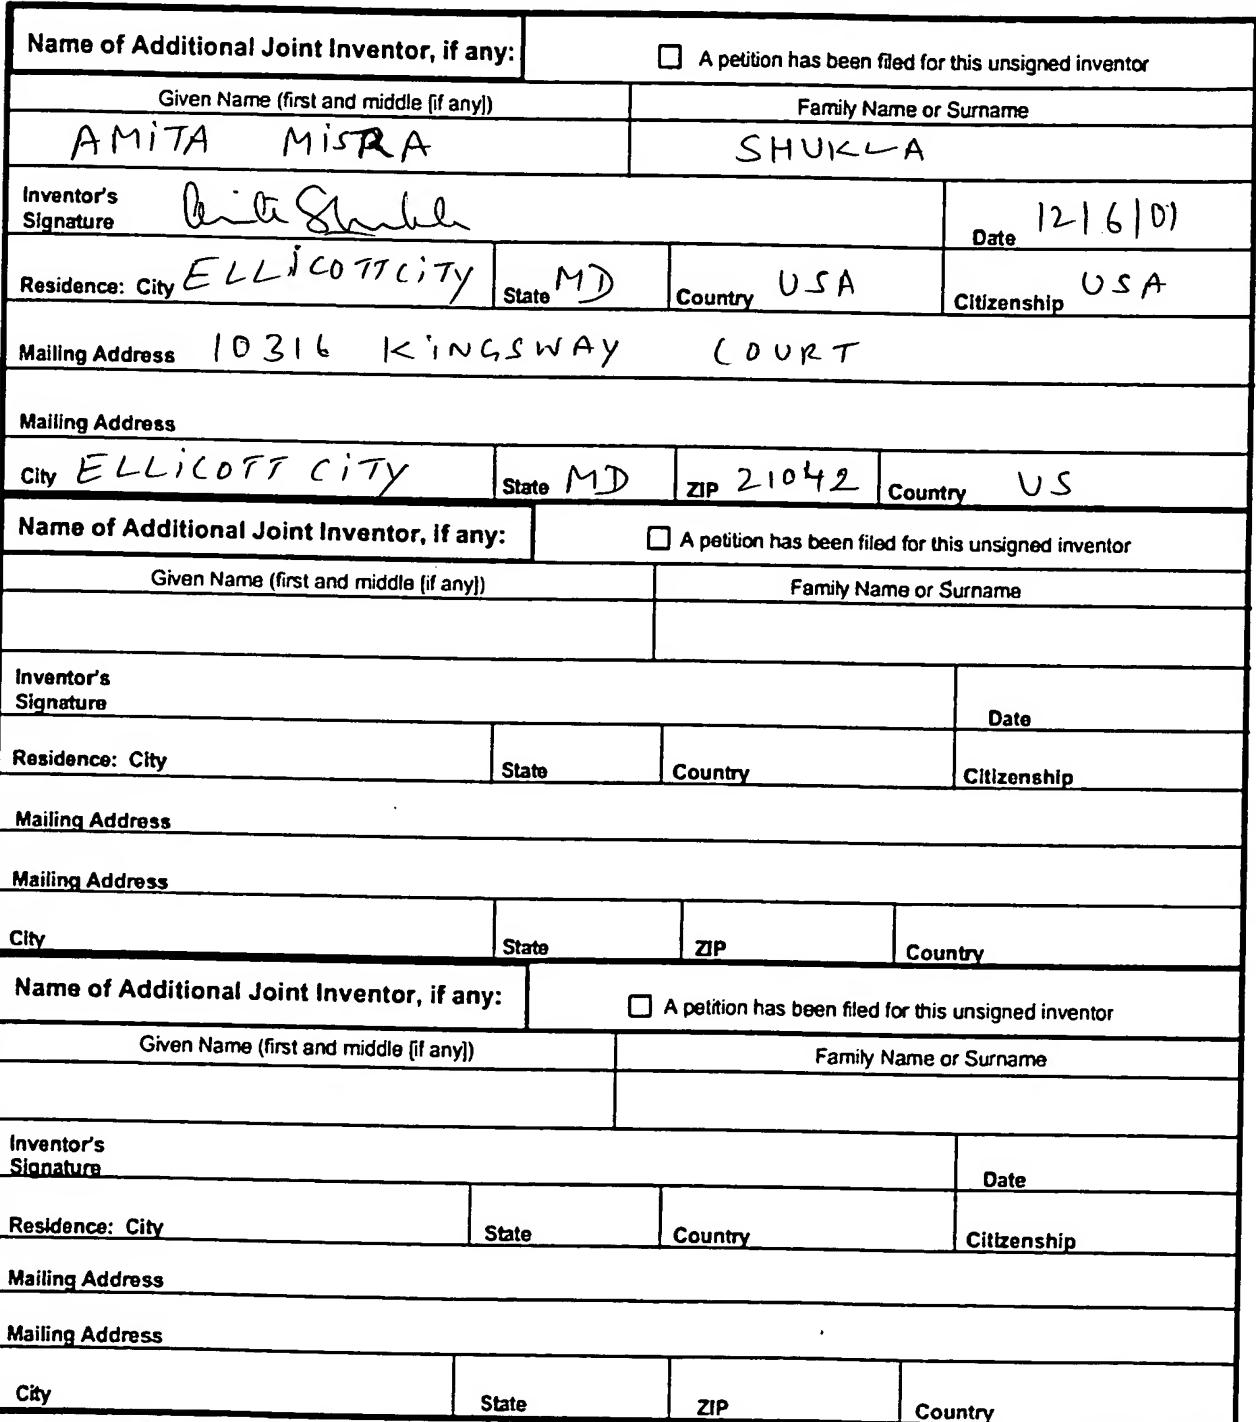 Name of Additional Joint Inventor, if any: ☐ A petition has been filed for this unsigned inventor
Given Name (first and middle [if any]) Family Name or Surname
AMITA MISRA SHUKLA
Inventor's
Signature Amita Shukla Date 12/6/01
Residence: City ELLICOTT CITY State MD Country USA Citizenship USA
Mailing Address 10316 KINGSWAY COURT
Mailing Address
City ELLICOTT CITY State MD ZIP 21042 Country US
Name of Additional Joint Inventor, if any: ☐ A petition has been filed for this unsigned inventor
Given Name (first and middle [if any]) Family Name or Surname
Inventor's
Signature Date
Residence: City State Country Citizenship
Mailing Address
Mailing Address
City State ZIP Country
Name of Additional Joint Inventor, if any: ☐ A petition has been filed for this unsigned inventor
Given Name (first and middle [if any]) Family Name or Surname
Inventor's
Signature Date
Residence: City State Country Citizenship
Mailing Address
Mailing Address
City State ZIP Country